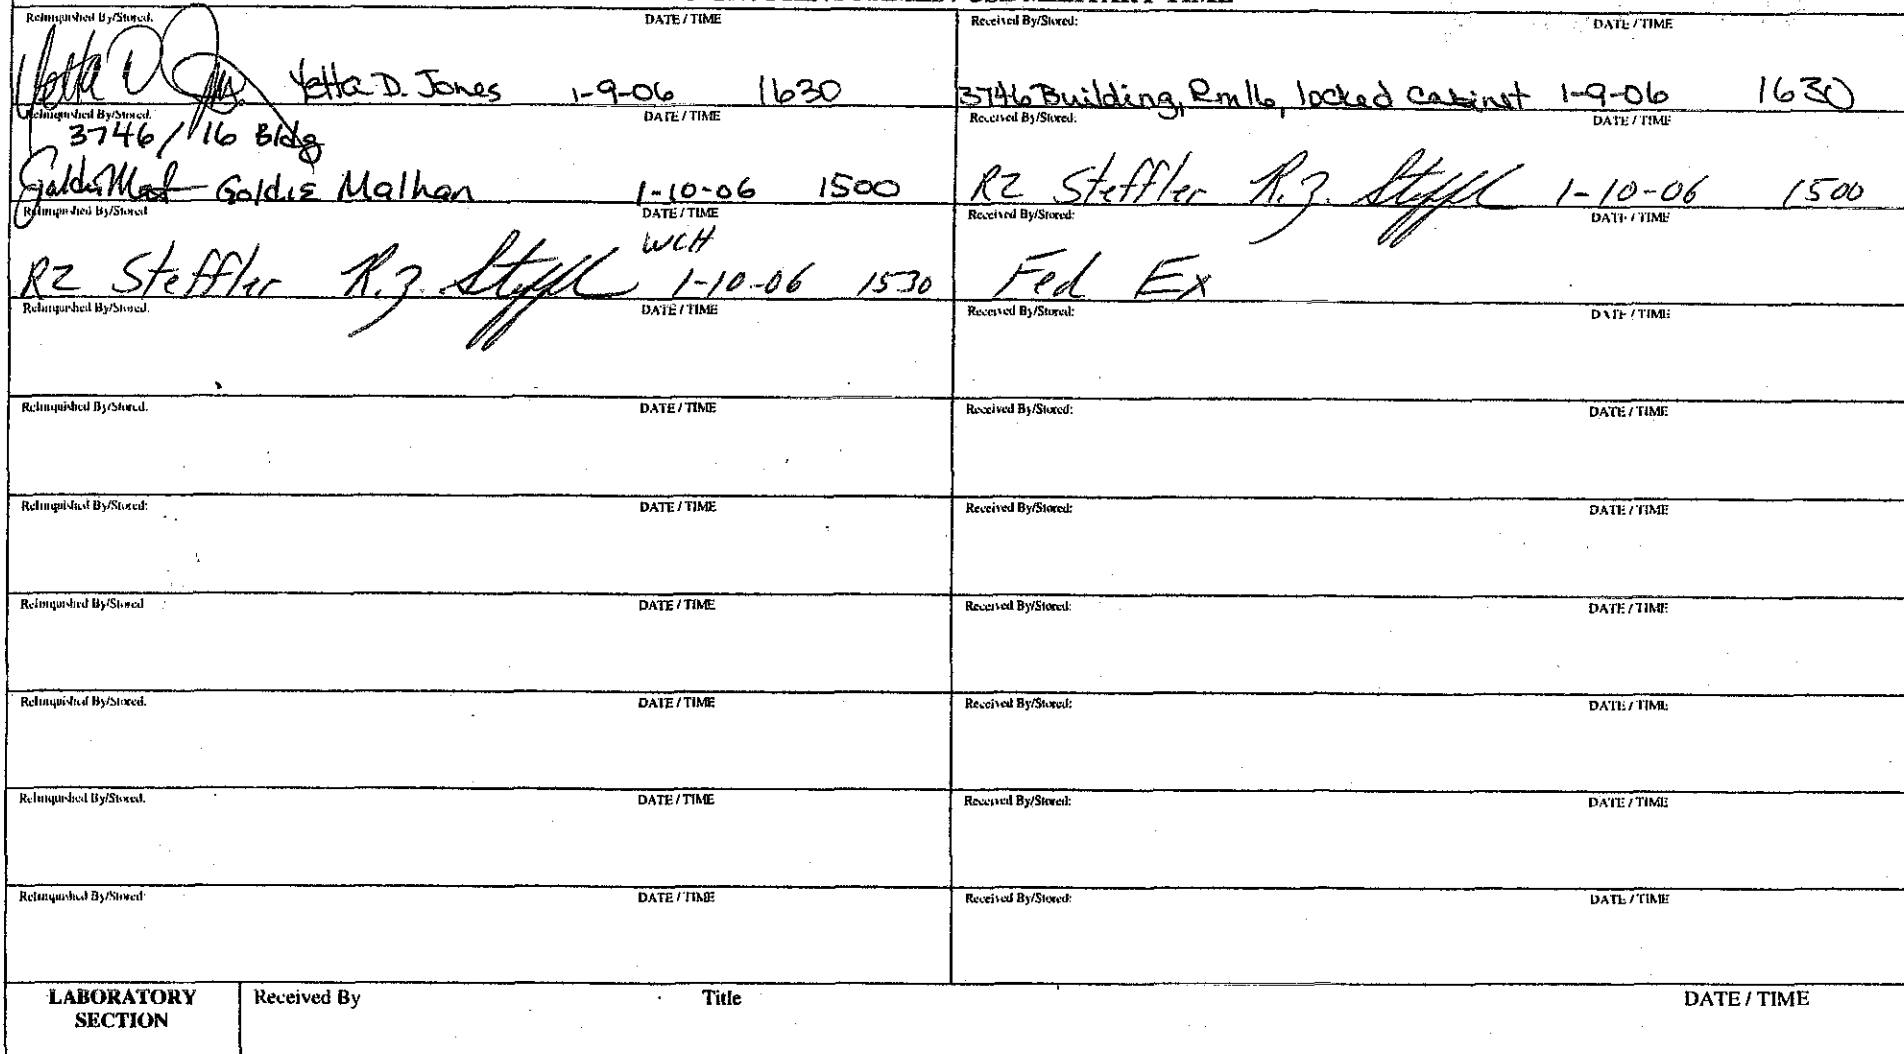 Relinquished By/Stored. DATE / TIME Received By/Stored: DATE / TIME
Yetta D. Jones 1-9-06 1630 3746 Building, Rm 16, locked cabinet 1-9-06 1630
Relinquished By/Stored. DATE / TIME Received By/Stored: DATE / TIME
3746 / 16 Bldg
Goldie Malhan 1-10-06 1500 RZ Steffler R.Z. Steffl 1-10-06 1500
Relinquished By/Stored DATE / TIME Received By/Stored: DATE / TIME
WCH
RZ Steffler R.Z. Steffl 1-10-06 1530 Fed Ex
Relinquished By/Stored. DATE / TIME Received By/Stored: DATE / TIME
Relinquished By/Stored. DATE / TIME Received By/Stored: DATE / TIME
Relinquished By/Stored: DATE / TIME Received By/Stored: DATE / TIME
Relinquished By/Stored DATE / TIME Received By/Stored: DATE / TIME
Relinquished By/Stored. DATE / TIME Received By/Stored: DATE / TIME
Relinquished By/Stored. DATE / TIME Received By/Stored: DATE / TIME
Relinquished By/Stored DATE / TIME Received By/Stored: DATE / TIME
LABORATORY SECTION Received By Title DATE / TIME